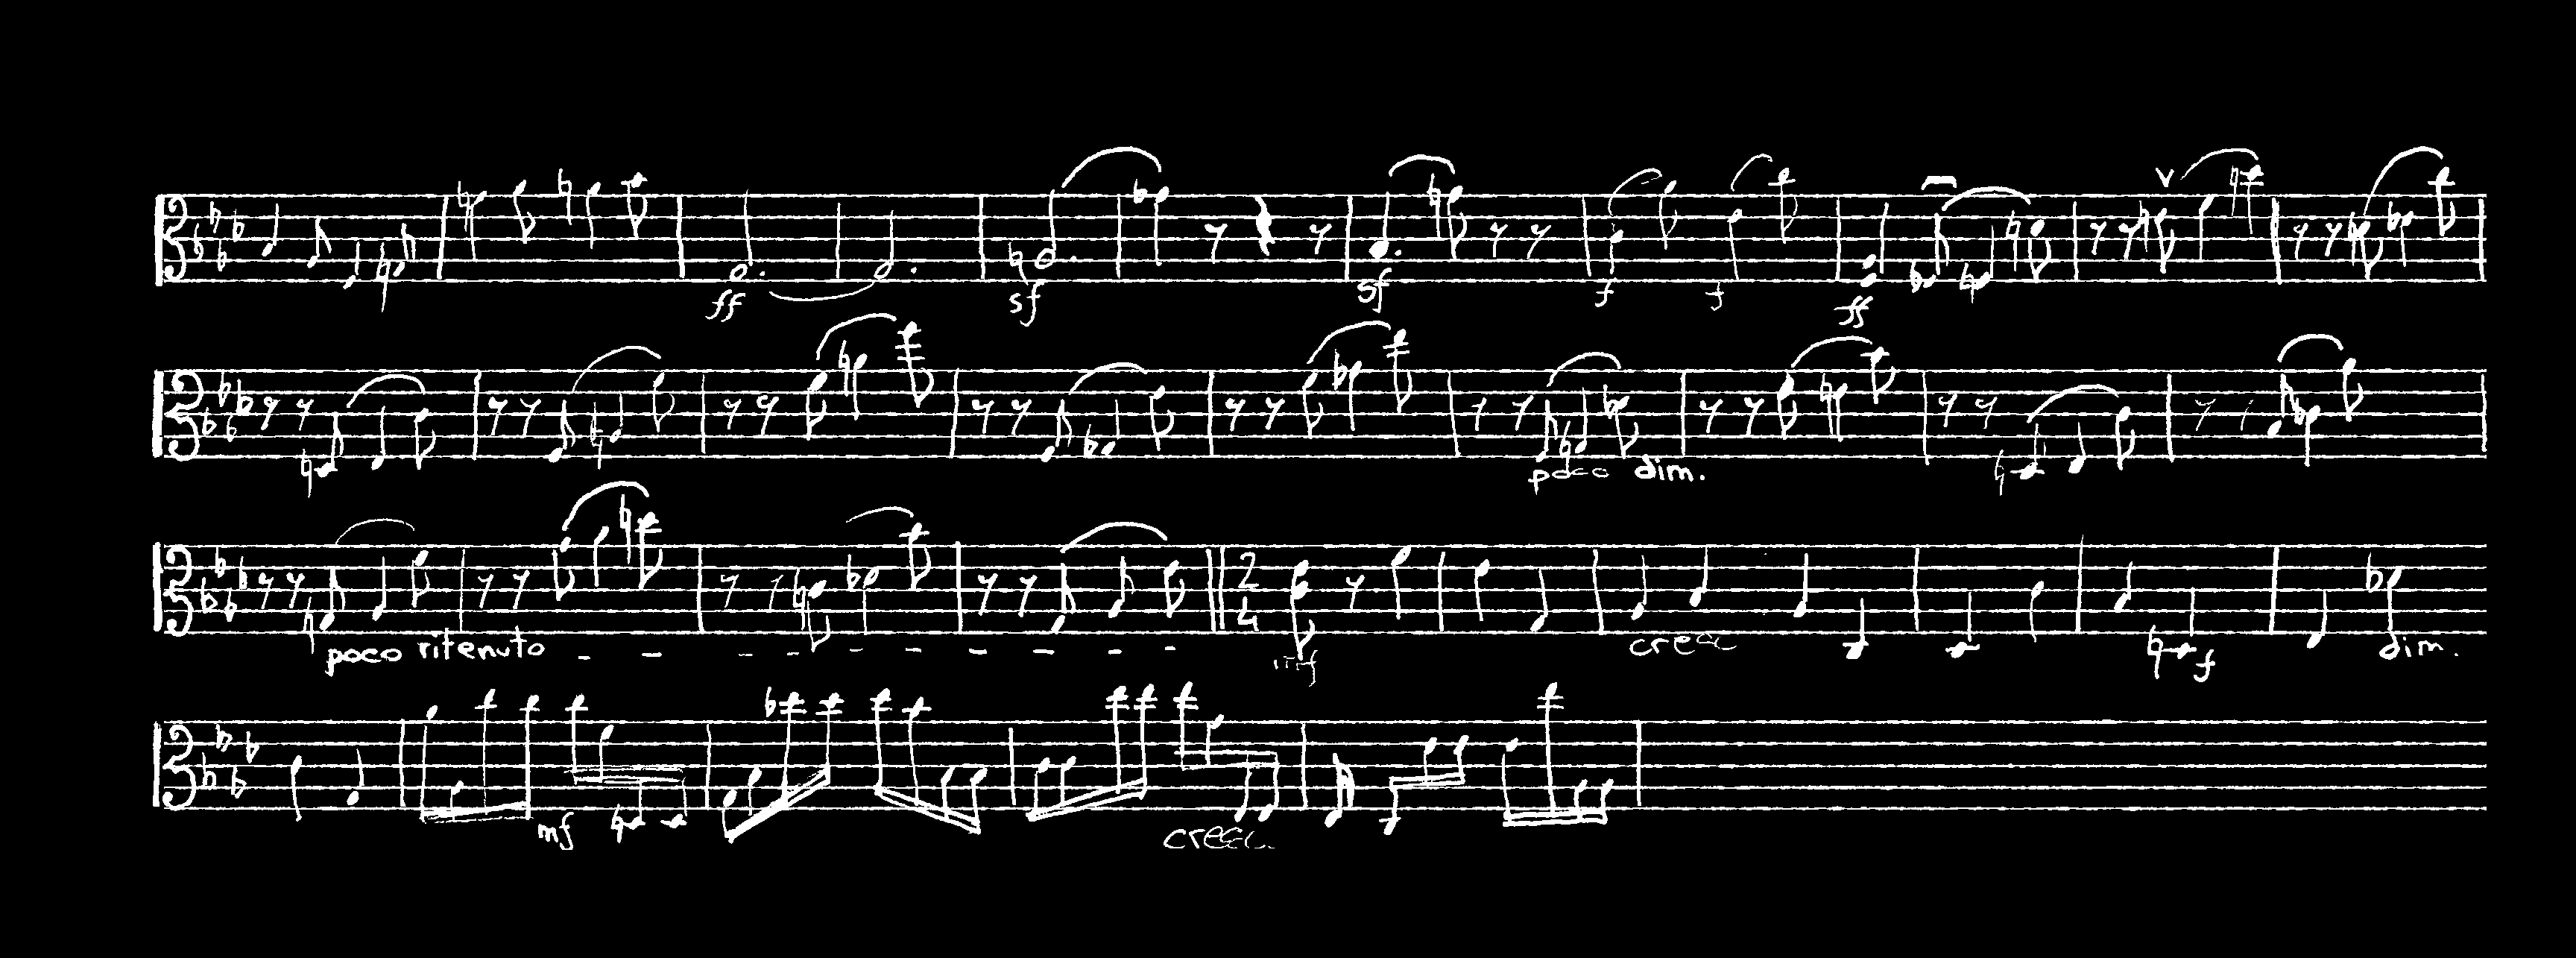 ff sf sf f f ff
poco dim.
2 4
poco ritenuto mf cresc f dim.
mf cresc.